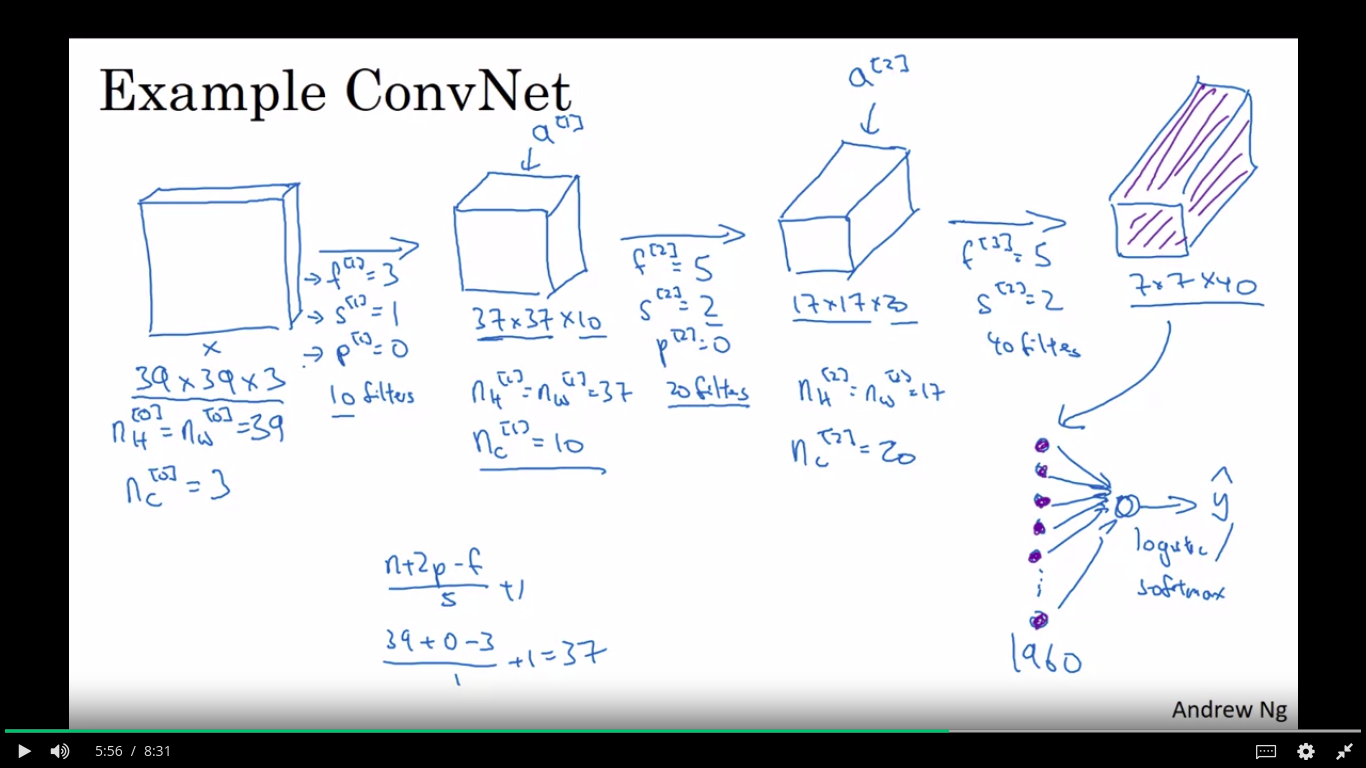 Example ConvNet
a^[1]
a^[2]
x
39 x 39 x 3
n_H^[0] = n_W^[0] = 39
n_C^[0] = 3
→ f^[1] = 3
→ s^[1] = 1
→ p^[1] = 0
10 filters
37 x 37 x 10
n_H^[1] = n_W^[1] = 37
n_C^[1] = 10
f^[2] = 5
s^[2] = 2
p^[2] = 0
20 filters
17 x 17 x 20
n_H^[2] = n_W^[2] = 17
n_C^[2] = 20
f^[3] = 5
s^[2] = 2
40 filters
7 x 7 x 40
n+2p-f / s +1
39+0-3 / 1 +1 = 37
ŷ
logistic/
softmax
1960
Andrew Ng
5:56 / 8:31